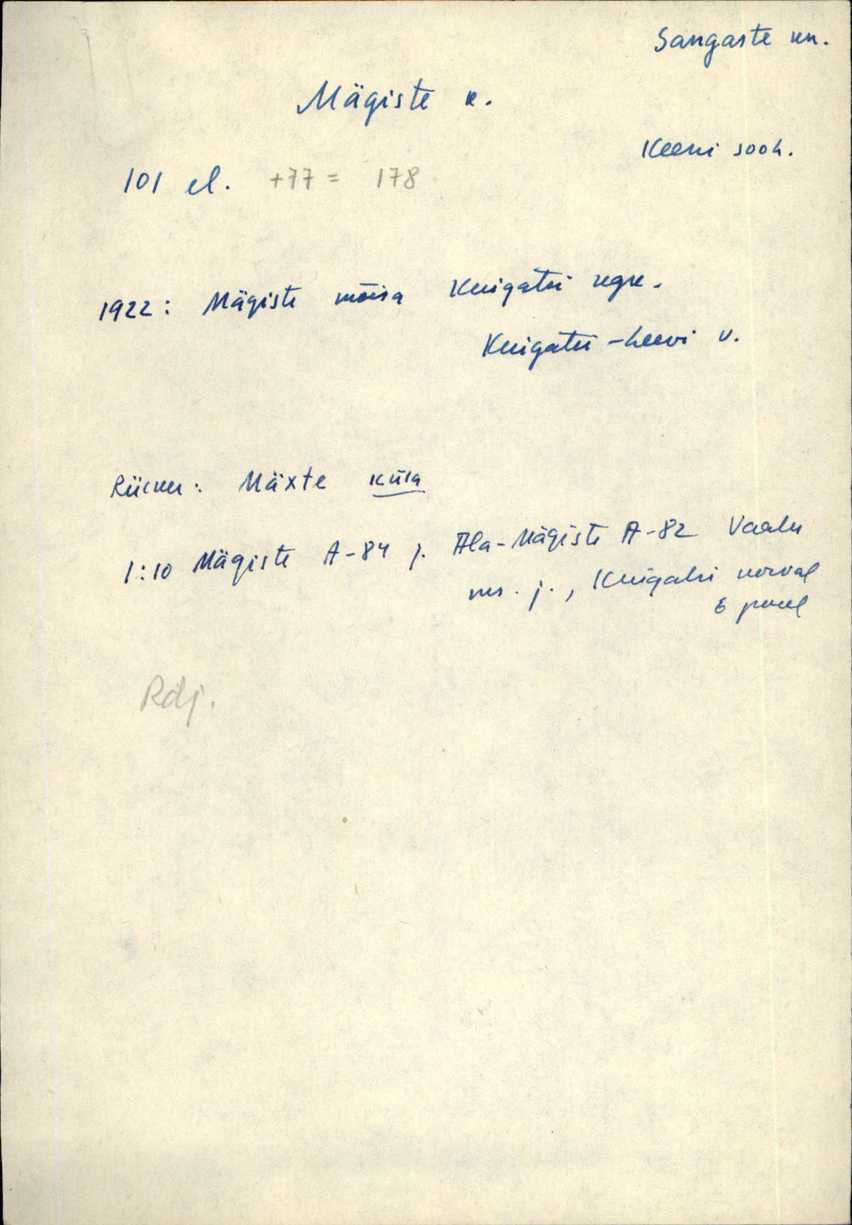 Sangaste kn.
Mägiste k.
Keeni sooh.
101 el. +77 = 178
1922: Mägiste mõisa Kuigatsi
Kuigatsi-Keeni v.
Rücker: Mäxte küla
1:10 Mägiste A-84 j. Ala-Mägiste A-82 Vaalu
ms. j., Kuigatsi
E pool
Rdj.